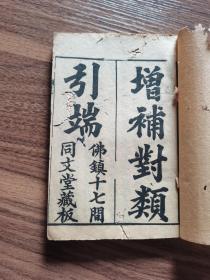 增補對類
引端
佛鎮十七間
同文堂藏板